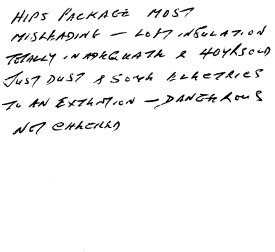 HIPS PACKAGE MOST
MISLEADING – LOFT INSULATION
TOTALLY INADEQUATE & 40 YRS OLD
JUST DUST & SOME ELECTRICS
TO AN EXTENTION – DANGEROUS
NOT CHECKED